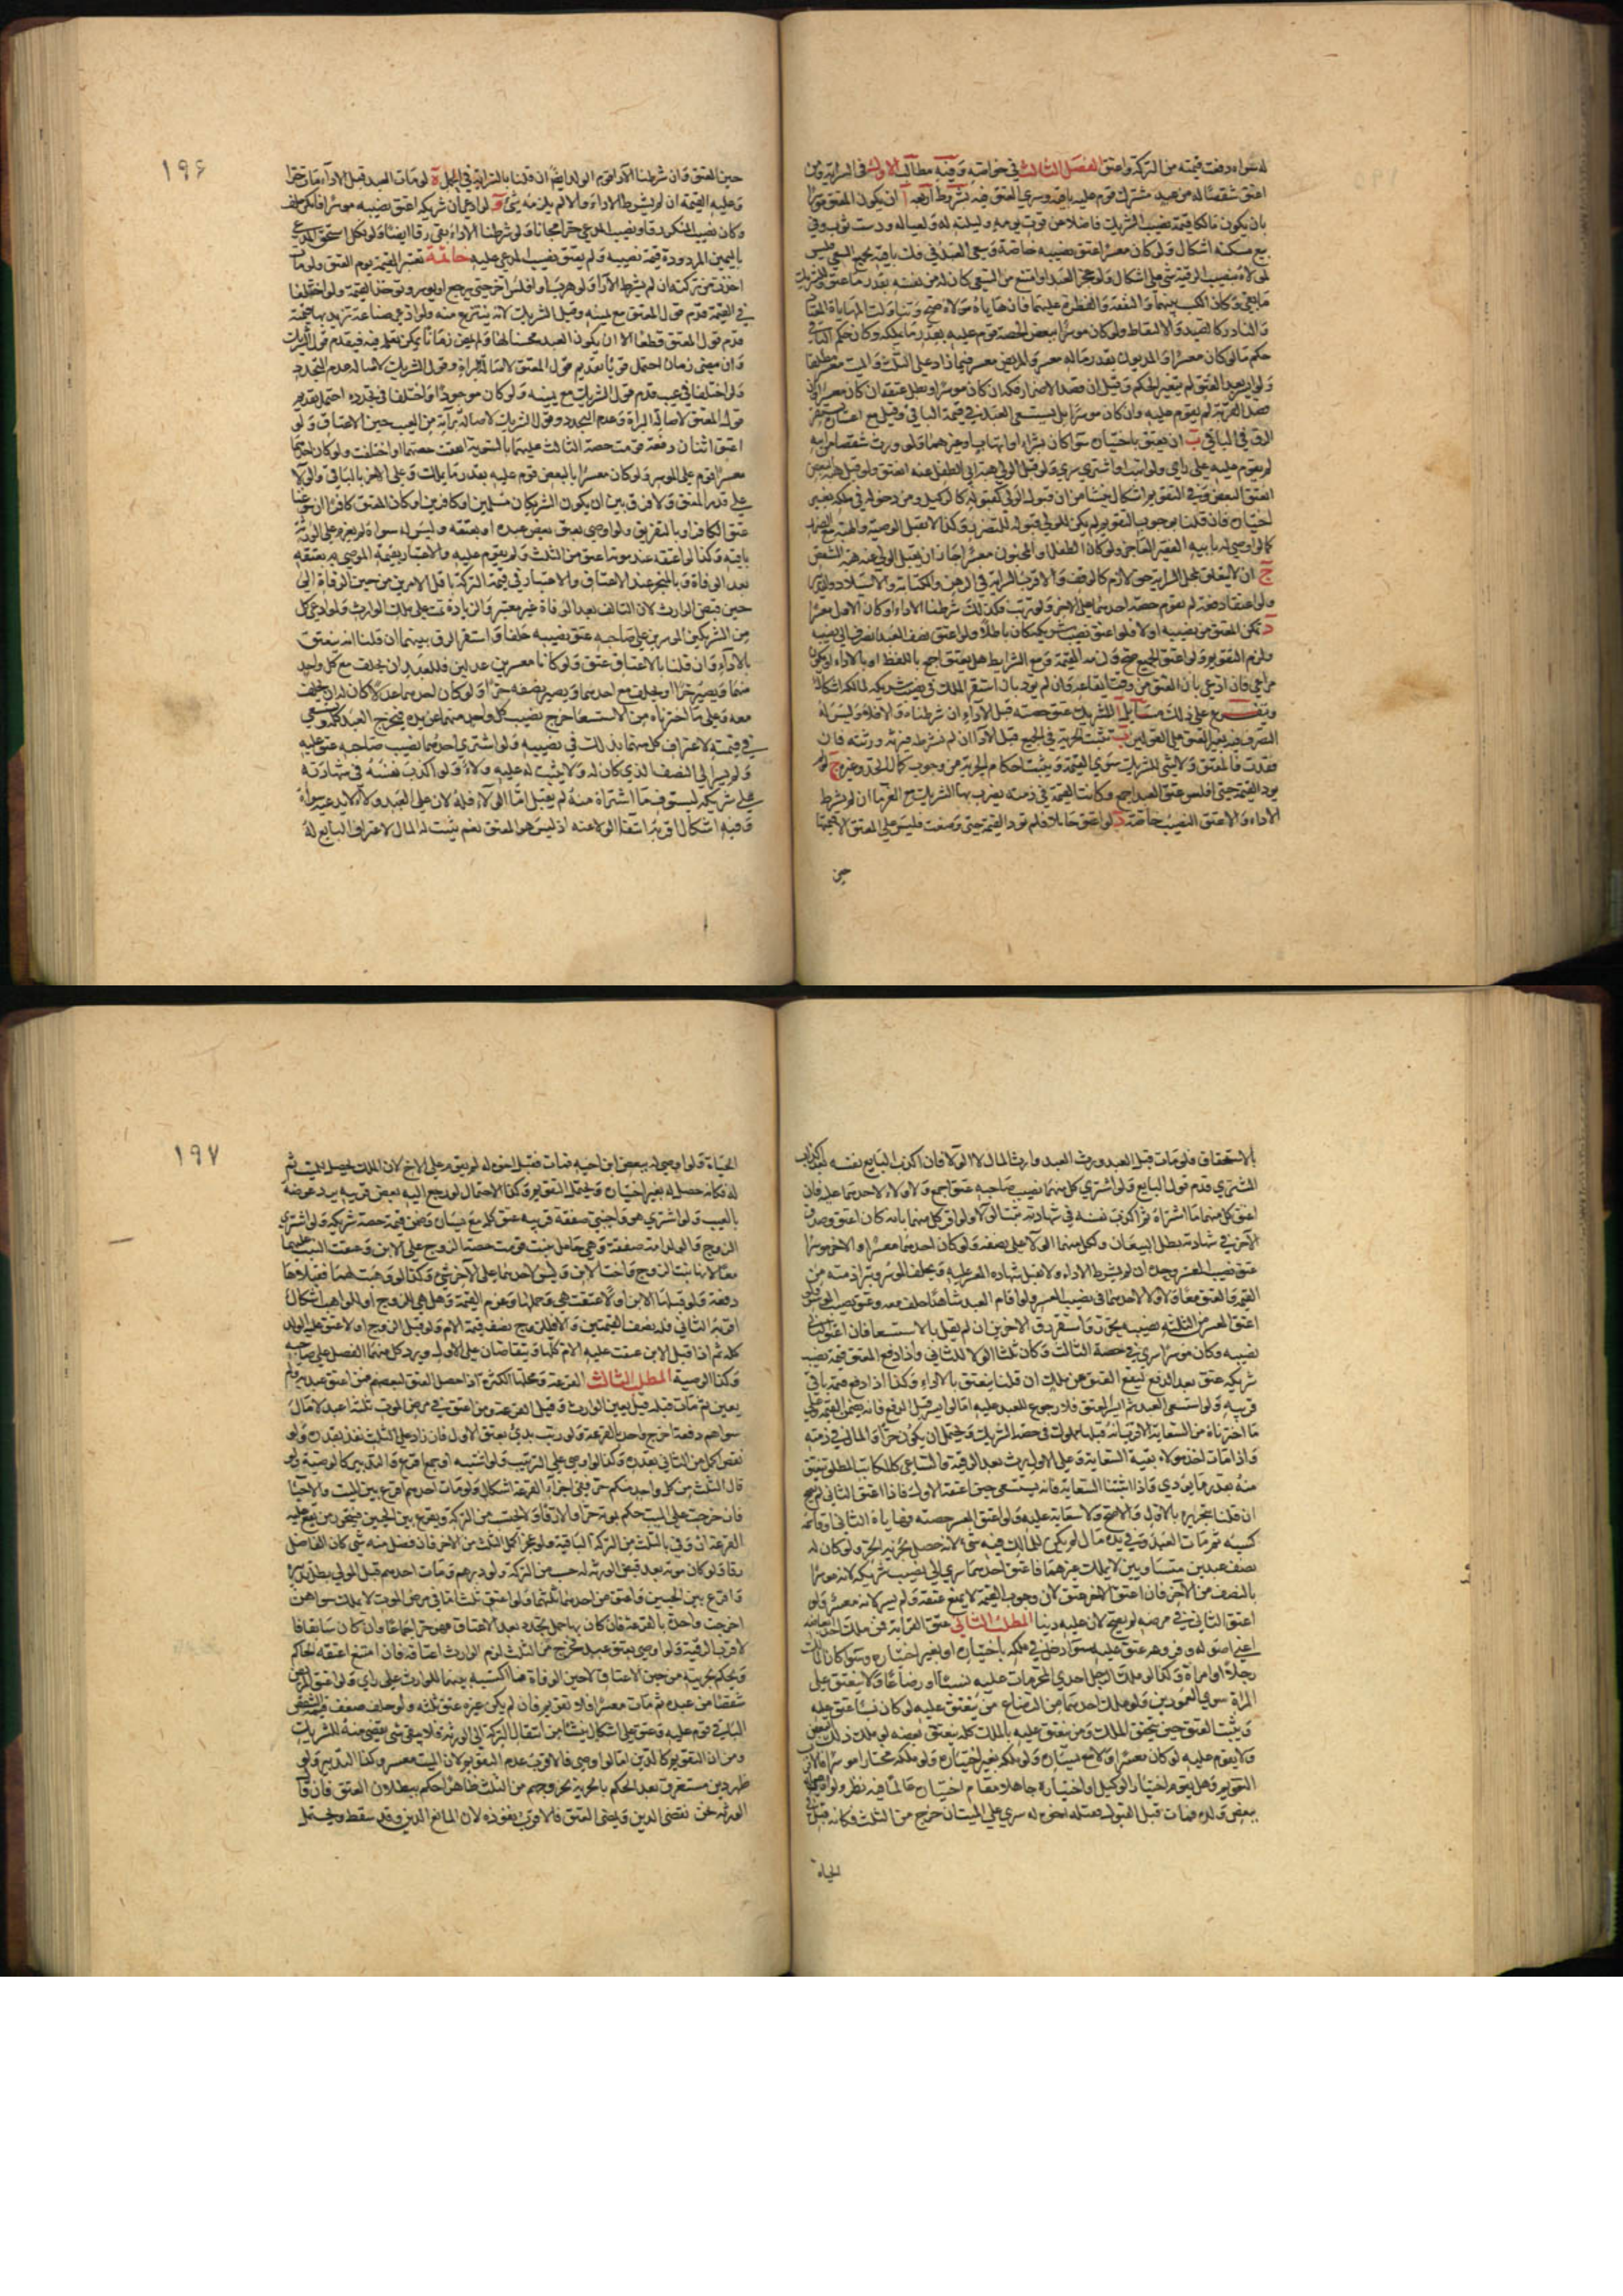 له سواء وفت قيمته من التركة واعتق الفصل الثالث في خواصه وفيه مطالب الاول في السراية ومن
اعتق شقصا له من عبد مشترك قوم عليه باقيه وسري العتق فيه بشروط اربعة آ ان يكون المعتق موسرا
بان يكون مالكا قيمة نصيب الشريك فاضلا عن قوت يومه وليلته له ولعياله ودست ثوب وفي
بيع مسكنه اشكال ولو كان معسرا اعتق نصيبه خاصة وسعى العبد في فك باقيه بجميع السعي فليس
لمولاه بنصيب الرقية شي على اشكال ولو عجز العبد او امتنع من السعي كان له من نفسه بقدر ما عتق وللشريك
ما بقي وكان الكسب بينهما والنفقة والفطرة عليهما فان هاياه مولاه صح وتناولت المهاياة المعتاد
والنادر كالصيد والالتقاط ولو كان موسرا ببعض الحصة قوم عليه بقدر ما يملكه وكان حكم الباقي
حكم ما لو كان معسرا والمديون بقدر ماله معسر والمريض معسر فيما زاد على الثلث والميت معسر مطلقا
ولو ايسر بعد العتق لم يتغير الحكم وقيل ان قصد الاضرار فكه ان كان موسرا وبطل عتقه ان كان معسرا وان
قصد القربة لم يقوم عليه وان كان موسرا بل يستسعى العبد في قيمة الباقي وقيل مع اعسار يستقر
الرق في الباقي ب ان يعتق باختياره سواء كان بشراء او اتهاب او غيرهما ولو ورث شقصا من ابيه
لم يقوم عليه على راي ولو اتهب او اشترى سرى ولو قبل الولي هبة اب الطفل عنه انعتق ولو قبل هبة البعض
انعتق البعض وفي التقويم اشكال ينشأ من ان قبول الولي كقبوله كالوكيل ومن دخوله في ملكه بغير
اختياره فان قلنا بوجوب التقويم لم يكن للولي قبوله للتضرر وكذا لا تقبل الوصية والهبة مع الضرر
كما لو اوصي له بابيه الفقير العاجز ولو كان الطفل او المجنون معسرا جاز ان يقبل الولي عنه هبة الشقص
ج ان لا يتعلق بمحل السراية حق لازم كالوقف والاقرب السراية في الرهن والكتابة والاستيلاد والتدبير
ولو اعتقا دفعة لم تقوم حصة احدهما على الاخر ولو ترتب فكذلك ان شرطنا الاداء او كان الاول معسرا
د تمكن العتق من نصيبه اولا فلو اعتق نصيب شريكه كان باطلا ولو اعتق نصف العبد انصرف الى نصيبه
ولزم التقويم ولو اعتق الجميع صح ولزمه القيمة ومع الشرايط هل يعتق اجمع باللفظ او بالاداء او يكون
مراعى فان ادي بان العتق من وقت ايقاعه وان لم يؤد بان استقر الملك في نصيب شريكه لمالكه اشكال
ويتفرع على ذلك مسايل آ للشريك عتق حصته قبل الاداء ان شرطناه والا فلا وليس له
التصرف فيه بغير العتق على القولين ب تثبت الحرية في الجميع قبل الاداء ان لم نشرط فيرثه ورثته فان
فقدت فالمعتق ولا يثبت للشريك سوى القيمة ويثبت احكام الحرية من وجوب كمال الحد وغيره ج لو لم
يؤد القيمة حتى افلس عتق العبد اجمع وكانت القيمة في ذمته يضرب بها الشريك مع الغرماء ان لم نشرط
الاداء والا عتق النصيب خاصة د لو اعتق حاملا فلم يؤد القيمة حتى وضعت فليس على المعتق الا قيمتها
حين
١٩٦
حين العتق وان شرطنا الاداء قوم الولد ايضا ان قلنا بالسراية في الحمل ه لو مات العبد قبل الاداء مات حرا
وعليه القيمة ان لم نشرط الاداء والا لم يلزمه شئ و لو ادعى ان شريكه اعتق نصيبه موسرا فانكر حلف
وكان نصيب المنكر رقا ونصيب المدعي حرا مجانا ولو شرطنا الاداء بقي رقا ايضا ولو نكل استحق المدعي
باليمين المردودة قيمة نصيبه ولم يعتق نصيب المدعى عليه خاتمة تعتبر القيمة يوم العتق ولو مات
اخذت من تركته ان لم نشرط الاداء ولو هرب او افلس اخر حتى يرجع او يوسر وتؤخذ القيمة ولو اختلفا
في القيمة قدم قول المعتق مع يمينه وقيل الشريك لانه ينتزع منه ولو ادعى صناعة تزيد بها قيمته
قدم قول المعتق قطعا الا ان يكون العبد محسنا لها ولم يمض زمان يمكن تعلمه فيه فيقدم قول الشريك
وان مضى زمان احتمل قويا تقديم قول المعتق لاصالة البراءة وقول الشريك لاصالة عدم التجدد
ولو اختلفا في عيب قدم قول الشريك مع يمينه ولو كان موجودا واختلفا في تجدده احتمل تقديم
قول المعتق لاصالة البراءة وعدم التجدد وقول الشريك لاصالة براءته من العيب حين الاعتاق ولو
اعتق اثنان دفعة قومت حصة الثالث عليهما بالسوية اتفقت حصتهما او اختلفت ولو كان احدهما
معسرا قوم على الموسر ولو كان معسرا بالبعض قوم عليه بقدر ما يملك وعلى الاخر بالباقي والولاء
على قدر العتق ولا فرق بين ان يكون الشريكان مسلمين او كافرين او كان المعتق كافرا ان سوغنا
عتق الكافر او بالتفريق ولو اوصى بعتق بعض عبده او بعتقه وليس له سواه لم يقوم على الورثة
باقيه وكذا لو اعتقه عند موته اعتق من الثلث ولم يقوم عليه والاعتبار بقيمة الموصى به بعتقه
بعد الوفاة وبالمنجز عند الاعتاق والاعتبار في قيمة التركة باقل الامرين من حين الوفاة الى
حين قبض الوارث لان التالف بعد الوفاة غير معتبر والزيادة نمت على ملك الوارث ولو ادعى كل
من الشريكين الموسرين على صاحبه عتق نصيبه حلفا واستقر الرق بينهما ان قلنا انه ينعتق
بالاداء وان قلنا بالاعتاق عتق ولو كانا معسرين عدلين فللعبد ان يحلف مع كل واحد
منهما ويصير حرا او يحلف مع احدهما ويصير نصفه حرا ولو كان احدهما عدلا كان له ان يحلف
معه وعلى ما اخترناه من الاستسعاء خرج نصيب كل واحد منهما عن يده فيخرج العبد كله ويسعى
في قيمته لاعتراف كل منهما بذلك في نصيبه ولو اشترى احدهما نصيب صاحبه عتق عليه
ولم يسر الى النصف الذي كان له ولا يثبت له عليه ولاء ولو اكذب نفسه في شهادته
على شريكه ليسترق ما اشتراه منه لم يقبل اما الولاء فله لان على العبد ولاء لا يدعيه سواه
وفيه اشكال اقربه انتفاء الولاء عنه اذ ليس هو المعتق نعم يثبت له المال لاعتراف البايع له
بالاستحقاق فلو مات قبل العبد ورث العبد وارث المال لا الولاء فان اكذب البايع نفسه
المشتري قدم قول البايع ولو اشترى كل منهما نصيب صاحبه عتق اجمع ولا ولاء لاحدهما عليه فان
اعتق كل منهما ما اشتراه ثم اكذب نفسه في شهادته ثبت الولاء ولو اقر كل منهما بانه كان اعتق وصدق
الاخر في شهادته بطل البيعان وكل منهما الولاء على نصفه ولو كان احدهما معسرا والاخر موسرا
عتق نصيب المعسر وحده ان لم نشرط الاداء ولا تقبل شهادة المعسر عليه ويحلف الموسر وتبرأ ذمته من
القيمة والعتق معا ولا ولاء لاحدهما في نصيب المعسر ولو اقام العبد شاهدا حلف معه وعتق نصيب الموسر ولو
اعتق المعسر من الثلثة نصيبه تحرر واستقر رق الاخرين ان لم نقل بالاستسعاء فان اعتق الثاني
نصيبه وكان موسرا سرى في حصة الثالث وكان ثلثا الولاء للثاني واذا دفع المعتق قيمة نصيب
شريكه عتق بعد الدفع ليقع العتق عن ملك ان قلنا ينعتق بالاداء وكذا اذا دفع قيمة باقي
قريبه ولو استسعى العبد ثم ايسر المعتق فلا رجوع للعبد عليه اما لو ايسر قبل الدفع فانه يضمن القيمة وعلى
ما اخترناه من السعاية الاقرب انه قبلها مملوك في حصة الشريك ويحتمل ان يكون حرا والمال في ذمته
واذا مات اخذ مولاه بقية السعاية وعلى الاول يرث بقدر الرقية والساعي كالمكاتب المطلق ينعتق
منه بقدر ما يؤدي واذا اثبتنا السعاية فانه يستسعى حين اعتقه الاول فاذا اعتق الثاني لم يصح
ان قلنا بتحريره بالاول والاصح ولا سعاية عليه ولو اعتق المعسر حصته وهاياه الثاني وقاسمه
كسبه ثم مات العبد وفي يده مال لم يكن للمالك فيه شئ لانه حصل بجزئه الحر ولو كان له
نصف عبدين متساويين لا يملك غيرهما فاعتق احدهما سرى الى نصيب شريكه لانه موسر
بالنصف من الاخر فان اعتق الاخر عتق لان وجوب القيمة لا يمنع عتقه ولم يسر لانه معسر ولو
اعتق الثاني في مرضه لم يصح لان عليه دينا المطلب الثاني عتق القرابة فمن ملك احد ابعاضه
اعني اصوله وفروعه عتق عليه سواء دخل في ملكه باختياره او بغير اختياره وسواء كان المالك
رجلا او امراة وكذا لو ملك الرجل احدى المحرمات عليه نسبا او رضاعا ولا ينعتق على
المراة سوى العمودين ولو ملك احدهما من الرضاع من ينعتق عليه لو كان نسبا عتق عليه
ويثبت العتق حين يتحقق الملك ومن ينعتق عليه بالملك كله ينعتق بعضه لو ملك ذلك البعض
ولا يقوم عليه لو كان معسرا ولا مع يساره ولو ملكه بغير اختياره ولو ملكه مختارا موسرا فالاقرب
التقويم وهل يقوم اختيار الوكيل واختياره جاهلا مقام اختياره عالما فيه نظر ولو اوصي له
ببعض ولده فمات قبل القبول فقبله اخوه له سرى على الميت ان خرج من الثلث وكانه قبل في
الحياة
١٩٧
الحياة ولو اوصي له ببعض ابن اخيه فمات فقبل اخوه له لم يقوم على الاخ لان الملك يحصل للميت ثم
له وكانه حصل له بغير اختياره ويحتمل التقويم وكذا الاحتمال لو رجع اليه بعض قريبه برد عوضه
بالعيب ولو اشترى هو واجنبي صفقة قريبه عتق كله مع يساره وضمن قيمة حصة شريكه ولو اشترى
الزوج والولد امه صفقة وهي حامل ببنت قومت حصة الزوج على الابن وعتقت البنت عليهما
معا لانها بنت الزوج واخت الابن وليس لاحدهما على الاخر شئ وكذا لو وهبت لهما فقبلاها
دفعة ولو قبلها الابن اولا عتقت هي وحملها وغرم القيمة وهل هي للزوج او للواهب اشكال
اقربه الثاني فله نصف القيمتين والا فللزوج نصف قيمة الام ولو قبل الزوج اولا عتق عليه الولد
كله ثم اذا قبل الابن عتقت عليه الام كلها ويتقاصان على الاول ويرد كل منهما الفضل على صاحبه
وكذا الوصية المطلب الثالث القرعة ومحلها الكثرة اذا حصل العتق لبعضهم فمن اعتق عبيده ولم
يعين ثم مات قبله قيل يعين الوارث وقيل القرعة ومن اعتق في مرض الموت ثلثة اعبد لا مال له
سواهم دفعة اخرج واحد بالقرعة ولو رتب بدئ بعتق الاول فان زاد على الثلث نفذ بقدره ولو
نقص اكمل من الثاني بعدده وكذا لو اوصى على الترتيب ولو اشتبه او جمع اقرع والتدبير كالوصية ولو
قال الثلث من كل واحد منكم حر ففي اجزاء القرعة اشكال ولو مات احدهم اقرع بين الميت والاحياء
فان خرجت على الميت حكم بموته حرا والا رقا ولا يحتسب من التركة ويقرع بين الحيين فيتحرر من تقع عليه
القرعة ان وفى بالثلث من التركة الباقية ولو عجز اكمل الثلث من الاخر فان فضل منه شي كان الفاضل
رقا ولو كان موته بعد قبض الورثة له حسب من التركة ولو دبرهم ومات احدهم قبل المولى بطل تدبيره
واقرع بين الحيين واعتق من احدهما ثلثهما ولو اعتق ثلث اماء في مرض الموت لا يملك سواهن
اخرجت واحدة بالقرعة فان كان بها حمل تجدد بعد الاعتاق فهو حر اجماعا وان كان سابقا فا
لاقرب الرقية ولو اوصى بعتق عبد فخرج من الثلث لزم الوارث اعتاقه فان امتنع اعتقه الحاكم
ويحكم بحريته من حين الاعتاق لا حين الوفاة فما اكتسبه بينهما للوارث على راي ولو اعتق المريض
شقصا من عبده ثم مات معسرا فلا تقويم فان لم يكن غيره عتق ثلثه ولو خلف ضعف قيمة الشقص
الباقي قوم عليه وعتق على اشكال ينشأ من انتقال التركة الى الورثة فلا يبقى شي يقضى منه للشريك
ومن ان التقويم كالدين اما لو اوصى فالاقرب عدم التقويم لان الميت معسر وكذا التدبير ولو
ظهر دين مستغرق بعد الحكم بالحرية بخروجهم من الثلث ظاهرا حكم ببطلان العتق فان قال
الورثة نحن نقضي الدين ونمضي العتق فالاقرب نفوذه لان المانع الدين وقد سقط ويحتمل